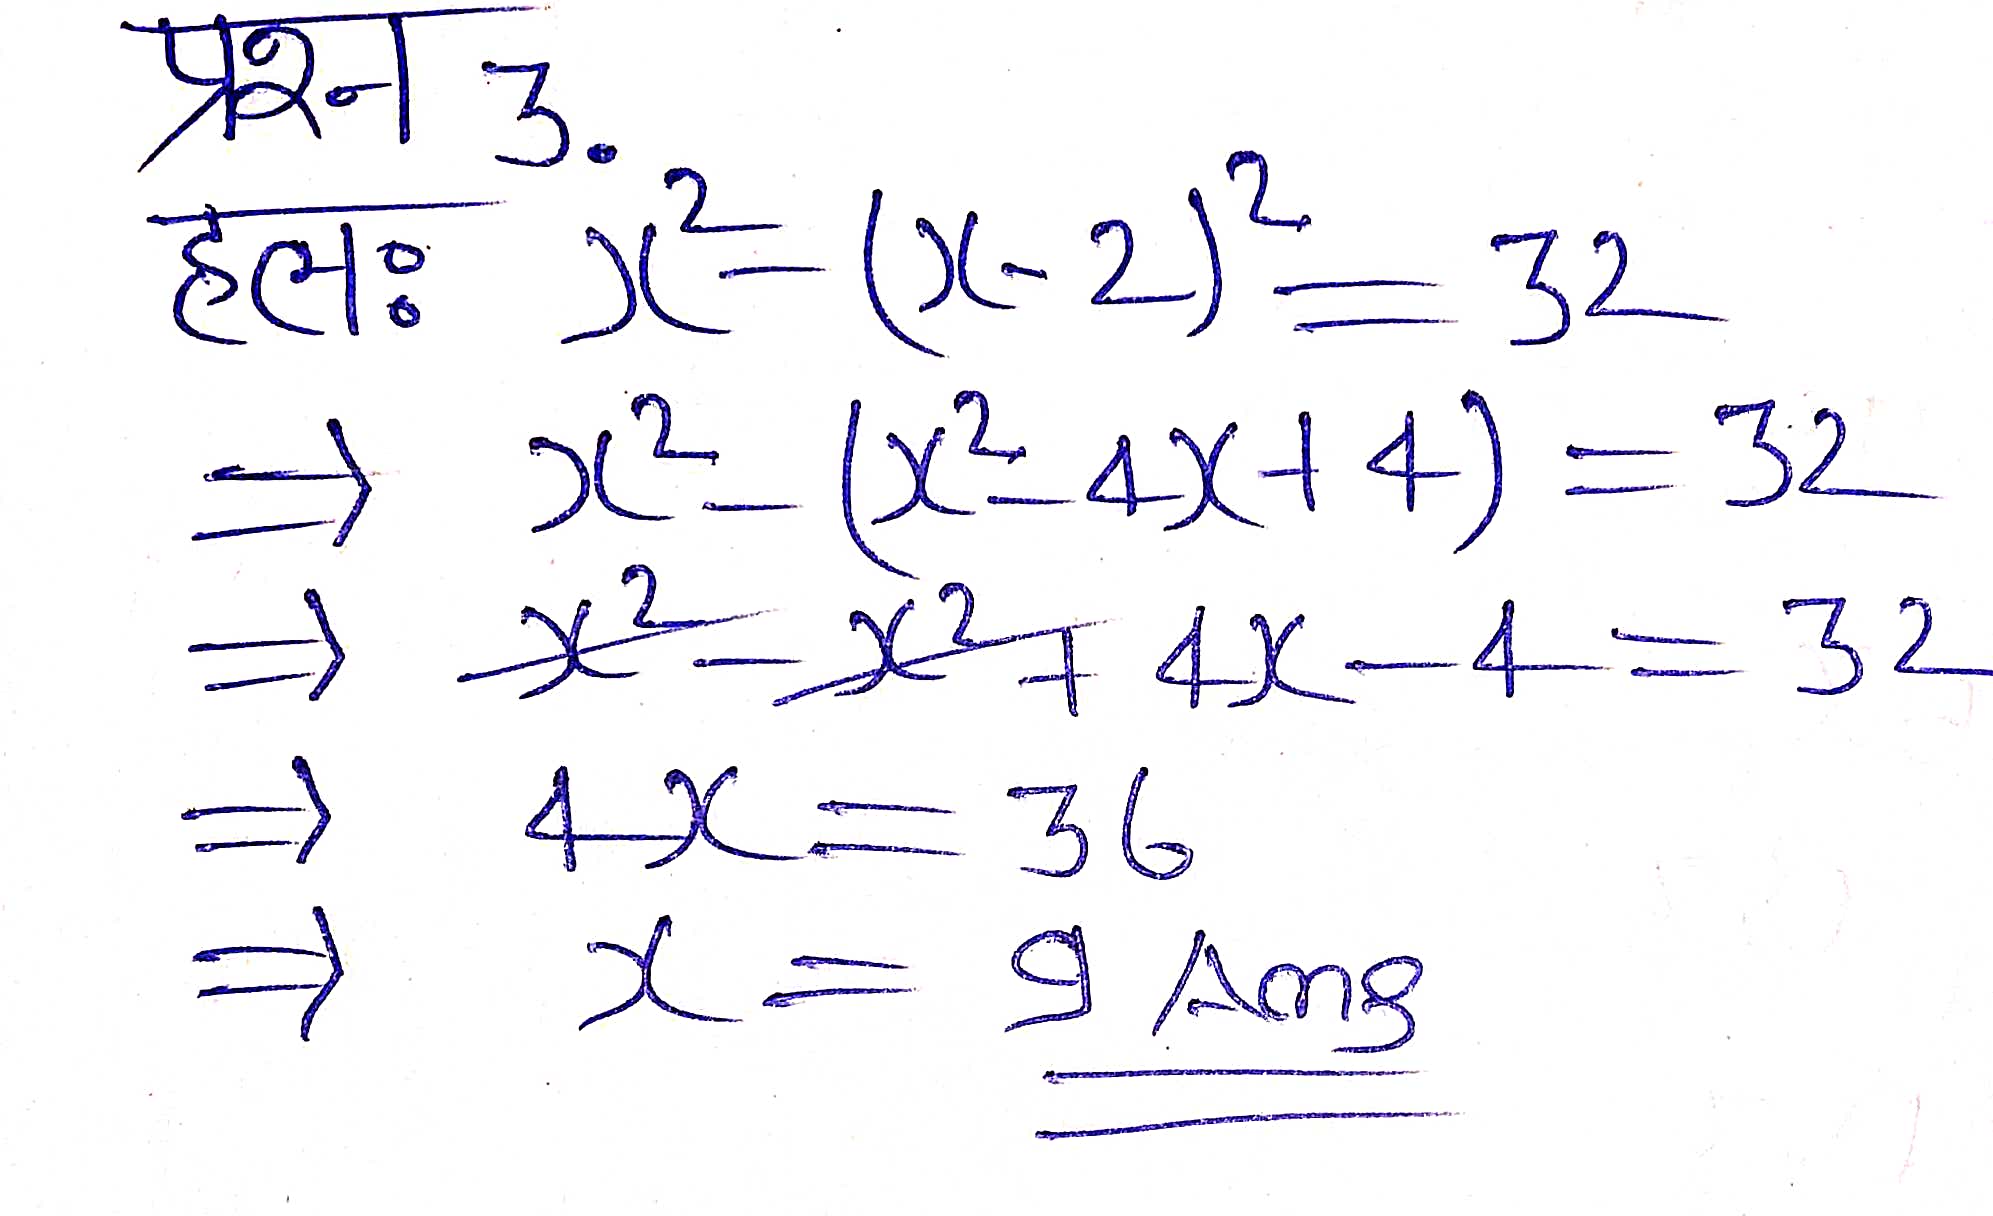 प्रश्न 3.
हलः x² - (x-2)² = 32
⇒ x² - (x² - 4x + 4) = 32
⇒ x² - x² + 4x - 4 = 32
⇒ 4x = 36
⇒ x = 9 Ans